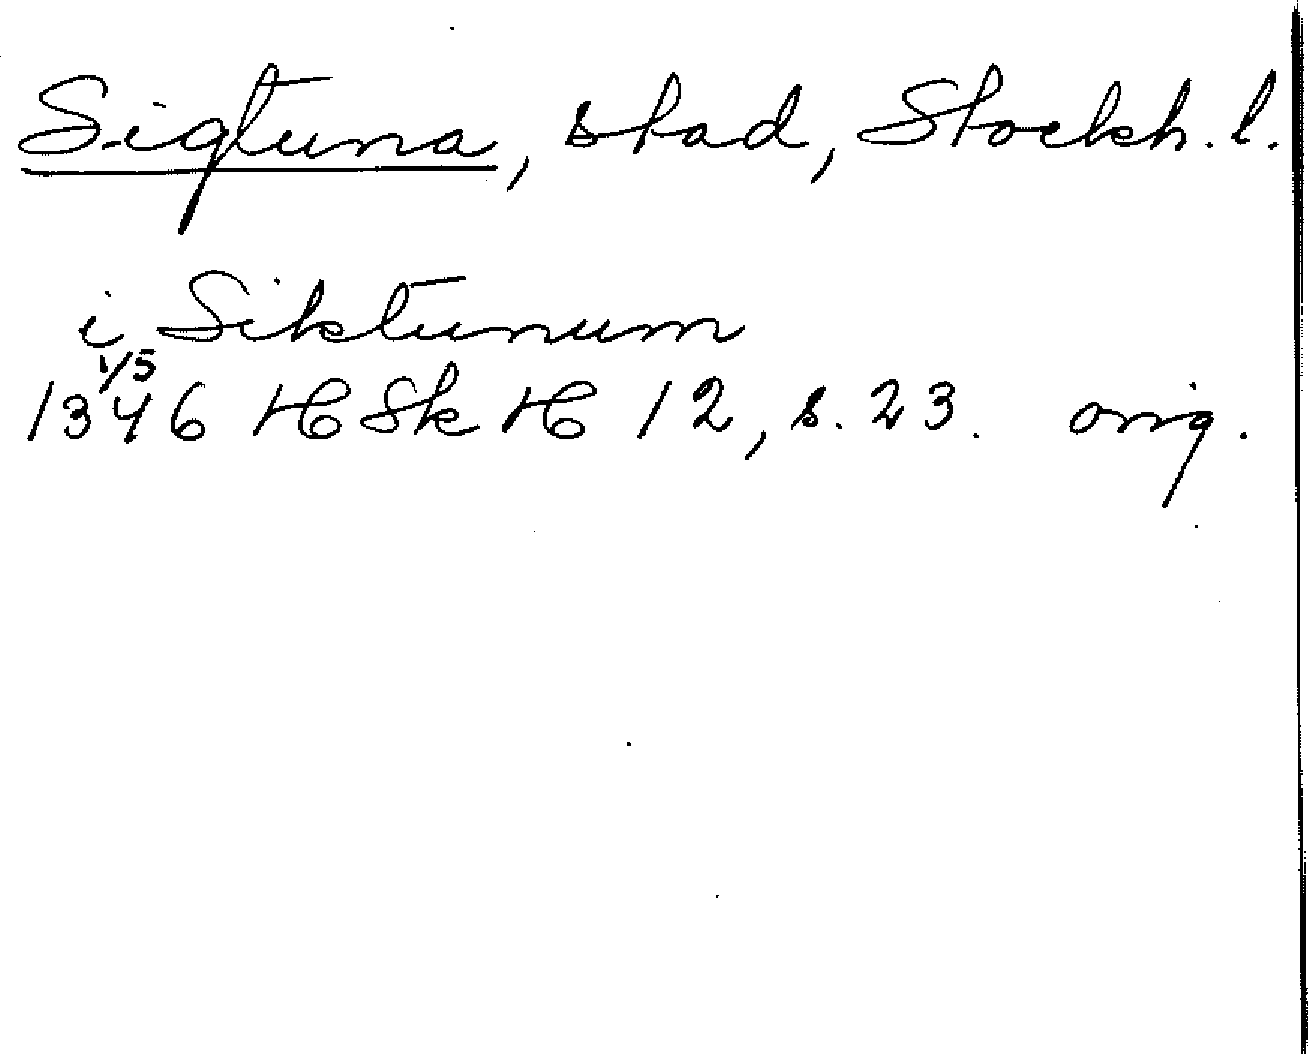 Sigtuna, stad, Stockh. l.
i Siktunum
1346 1/5 HSkH 12, s. 23. orig.